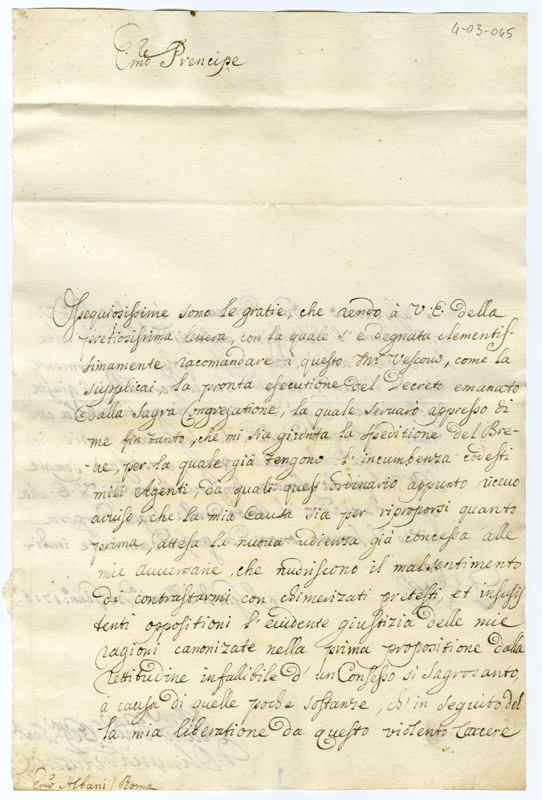 4-03-045
Em̃o e Rē Prencipe
Ossequiosissime sono le gratie, che rendo à V. E. della
pretiosissima lettera, con la quale s' è degnata clementis-
simamente racomandare à questo Mr Vescovo, come la
supplicai la pronta esecutione del Decreto emanato
dalla Sagra Congregatione, la quale servarò appresso di
me fin tanto, che mi sia giunta la speditione del Bre-
ve, per la quale già tengono l' incumbenza codesti
miei Agenti da quali quest' ordinario appunto ricevo
avviso, che la mia causa sia per riproporsi quanto
prima, attesa la nuova udienza già concessa alle
mie Avversarie, che nudriscono il mal sentimento
di contrastarmi con chimerizati pretesti, et insussis
tenti oppositioni l' evidente giustizia delle mie
ragioni canonizate nella prima propositione dalla
rettitudine infallibile d' un Consesso si Sagrosanto,
à causa di quelle poche sostanze, ch' in seguito del
la mia liberatione da questo violento carcere
Em̃o Albani / Roma